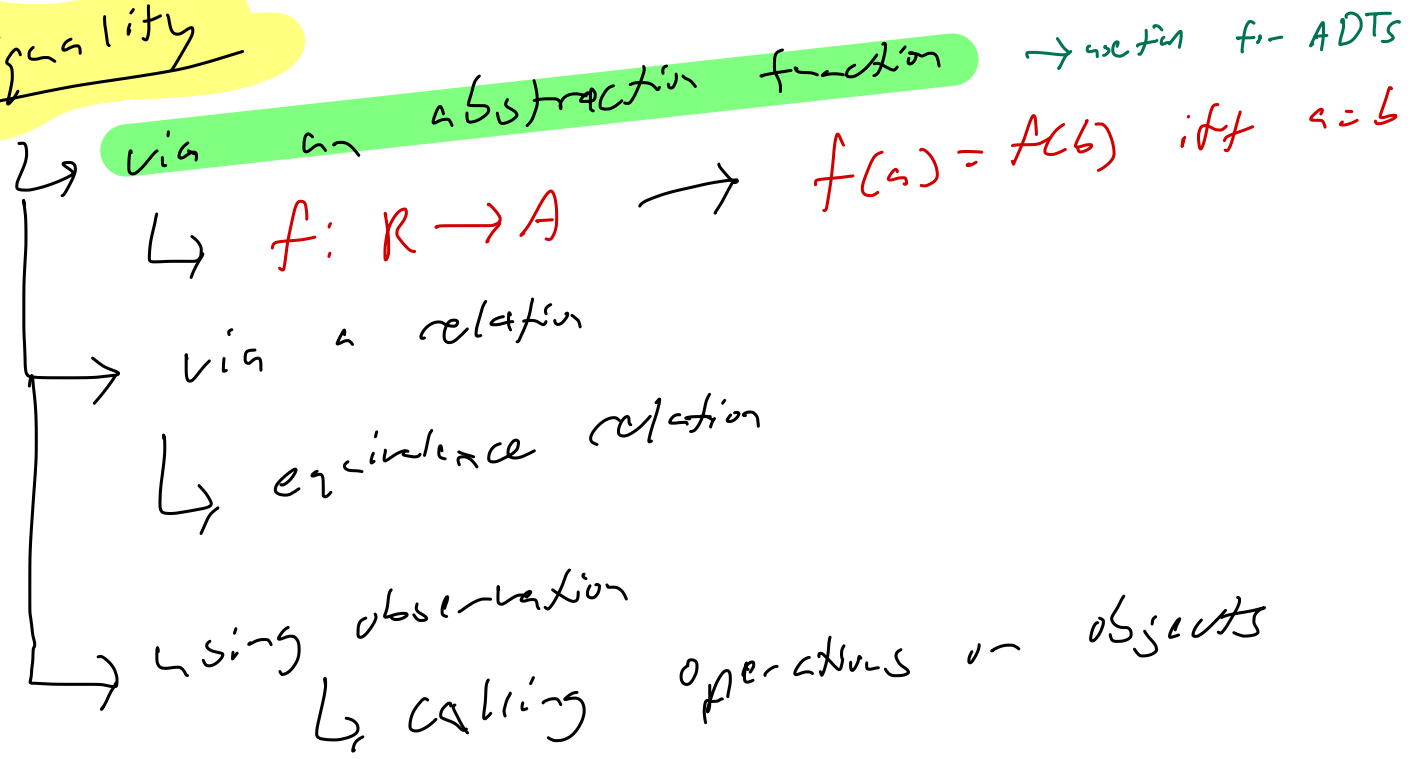 quality
via an abstraction function → useful for ADTs
↳ f: R → A → f(a) = f(b) iff a = b
via a relation
↳ equivalence relation
using observation
↳ calling operations on objects